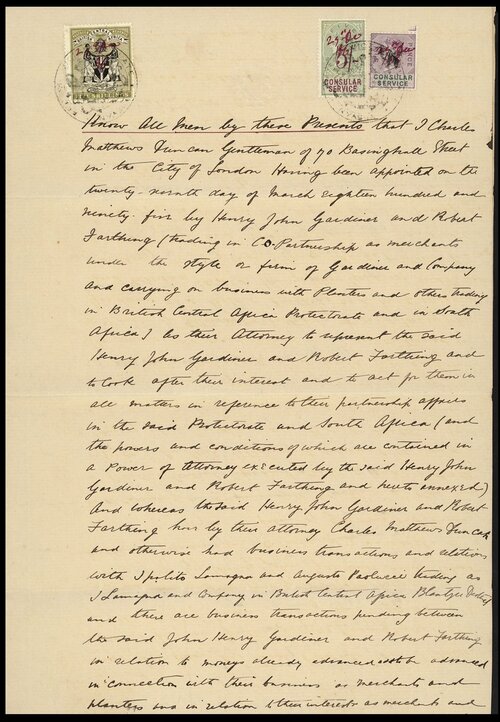 CONSULAR
SERVICE
CONSULAR
SERVICE
Know All Men by these Presents that I Charles
Mathews Duncan Gentleman of 70 Basinghall Street
in the City of London Having been appointed on the
twenty-ninth day of March Eighteen hundred and
Ninety-five by Henry John Gardiner and Robert
Farthing (trading in Co-Partnership as merchants
under the style or firm of Gardiner and Company
and carrying on business with Planters and others trading
in British Central Africa Protectorate and in South
Africa) as their Attorney to represent the said
Henry John Gardiner and Robert Farthing and
to look after their interest and to act for them in
all matters in reference to their partnership affairs
in the said Protectorate and South Africa (and
the powers and conditions of which are contained in
a Power of Attorney executed by the said Henry John
Gardiner and Robert Farthing and hereto annexed)
And whereas the said Henry John Gardiner and Robert
Farthing have by their attorney Charles Mathews Duncan
and otherwise had business transactions and relations
with Ipolito Lamagna and Augusto Paolucci trading as
I Lamagna and Company in British Central Africa Blantyre District
and there are business transactions pending between
the said John Henry Gardiner and Robert Farthing
in relation to moneys already advanced and to be advanced
in connection with their business as merchants and
planters and in relation to their interests as merchants and